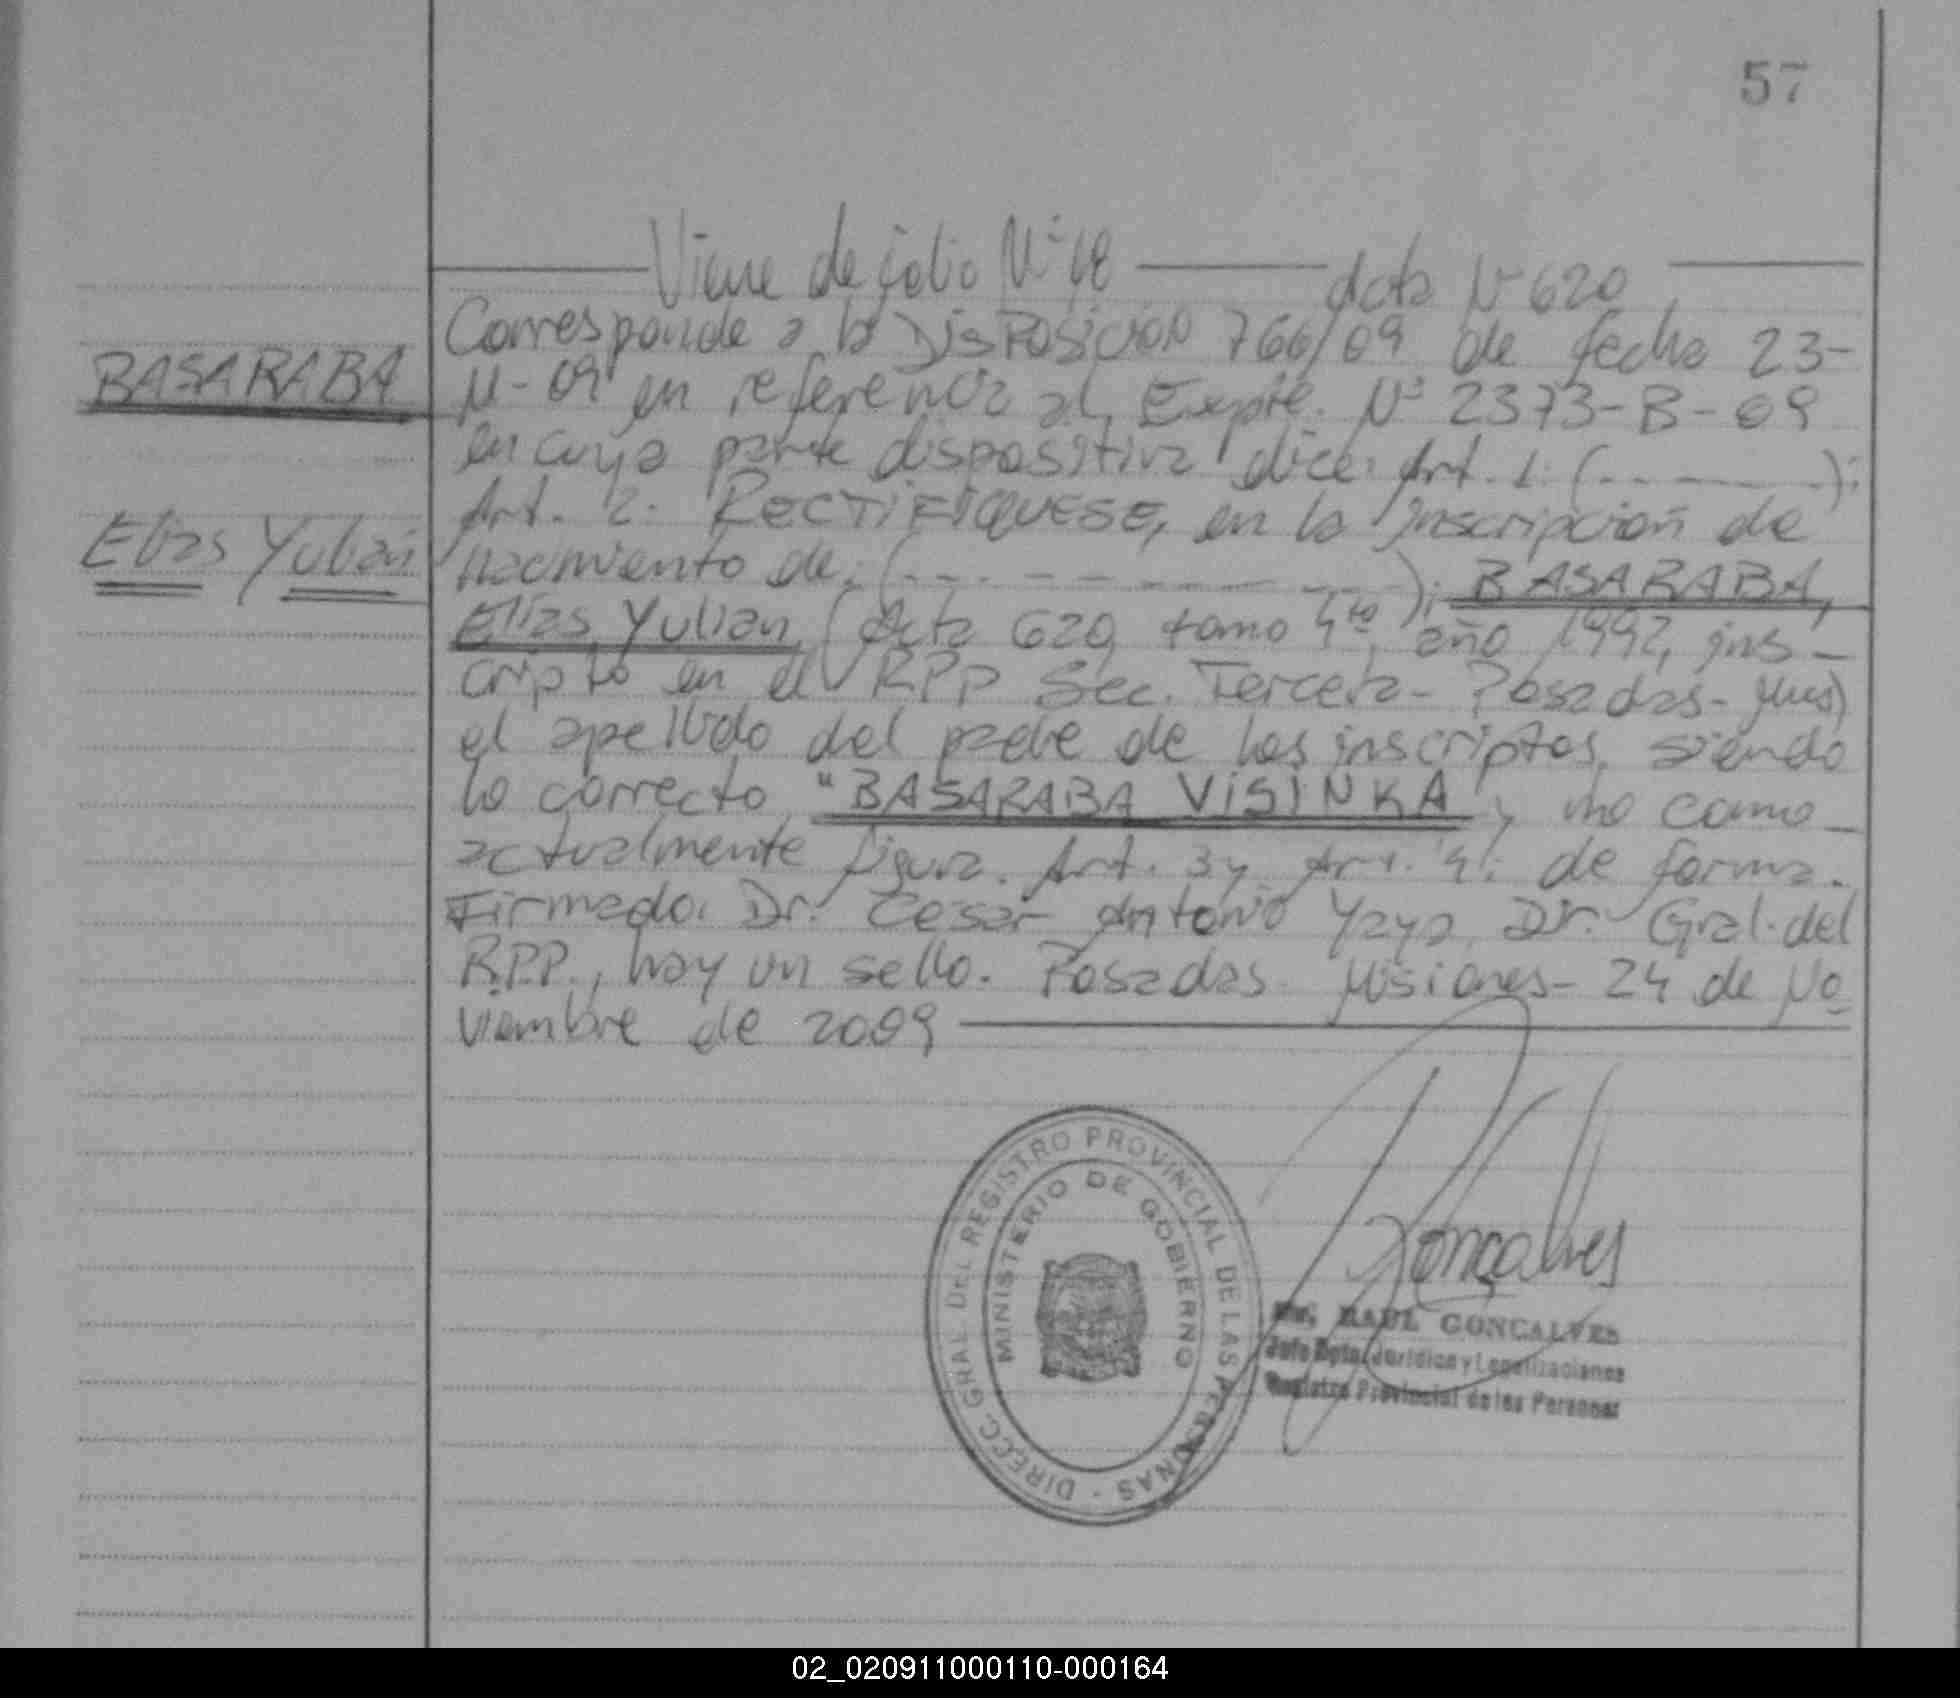 57
Viene de folio Nº 18 Acta Nº 620
Corresponde a la Disposición 766/09 de fecha 23-
BASARABA
11-09 en referencia al Expte. Nº 2373-B-09
en cuya parte dispositiva dice: Art. 1: (--------);
Art. 2: RECTIFIQUESE, en la inscripción de
Elias Yulian
nacimiento de: (------------); BASARABA,
Elias Yulian (Acta 620, tomo 4to, año 1992, ins-
cripto en el RPP Sec. Tercera- Posadas- Mnes)
el apellido del padre de los inscriptos, siendo
lo correcto "BASARABA VISINKA" y no como
actualmente figura. Art. 3 y Art. 4: de forma.
Firmado: Dr. Cesar Antonio Yaya, Dir. Gral. del
R.P.P., hay un sello. Posadas- Misiones- 24 de No
viembre de 2009
DIRECC. GRAL. DEL REGISTRO PROVINCIAL DE LAS PERSONAS -
MINISTERIO DE GOBIERNO
Goncalves
RAUL GONCALVES
Jefe Dpto. Jurídico y Legalizaciones
Registro Provincial de las Personas
02_020911000110-000164